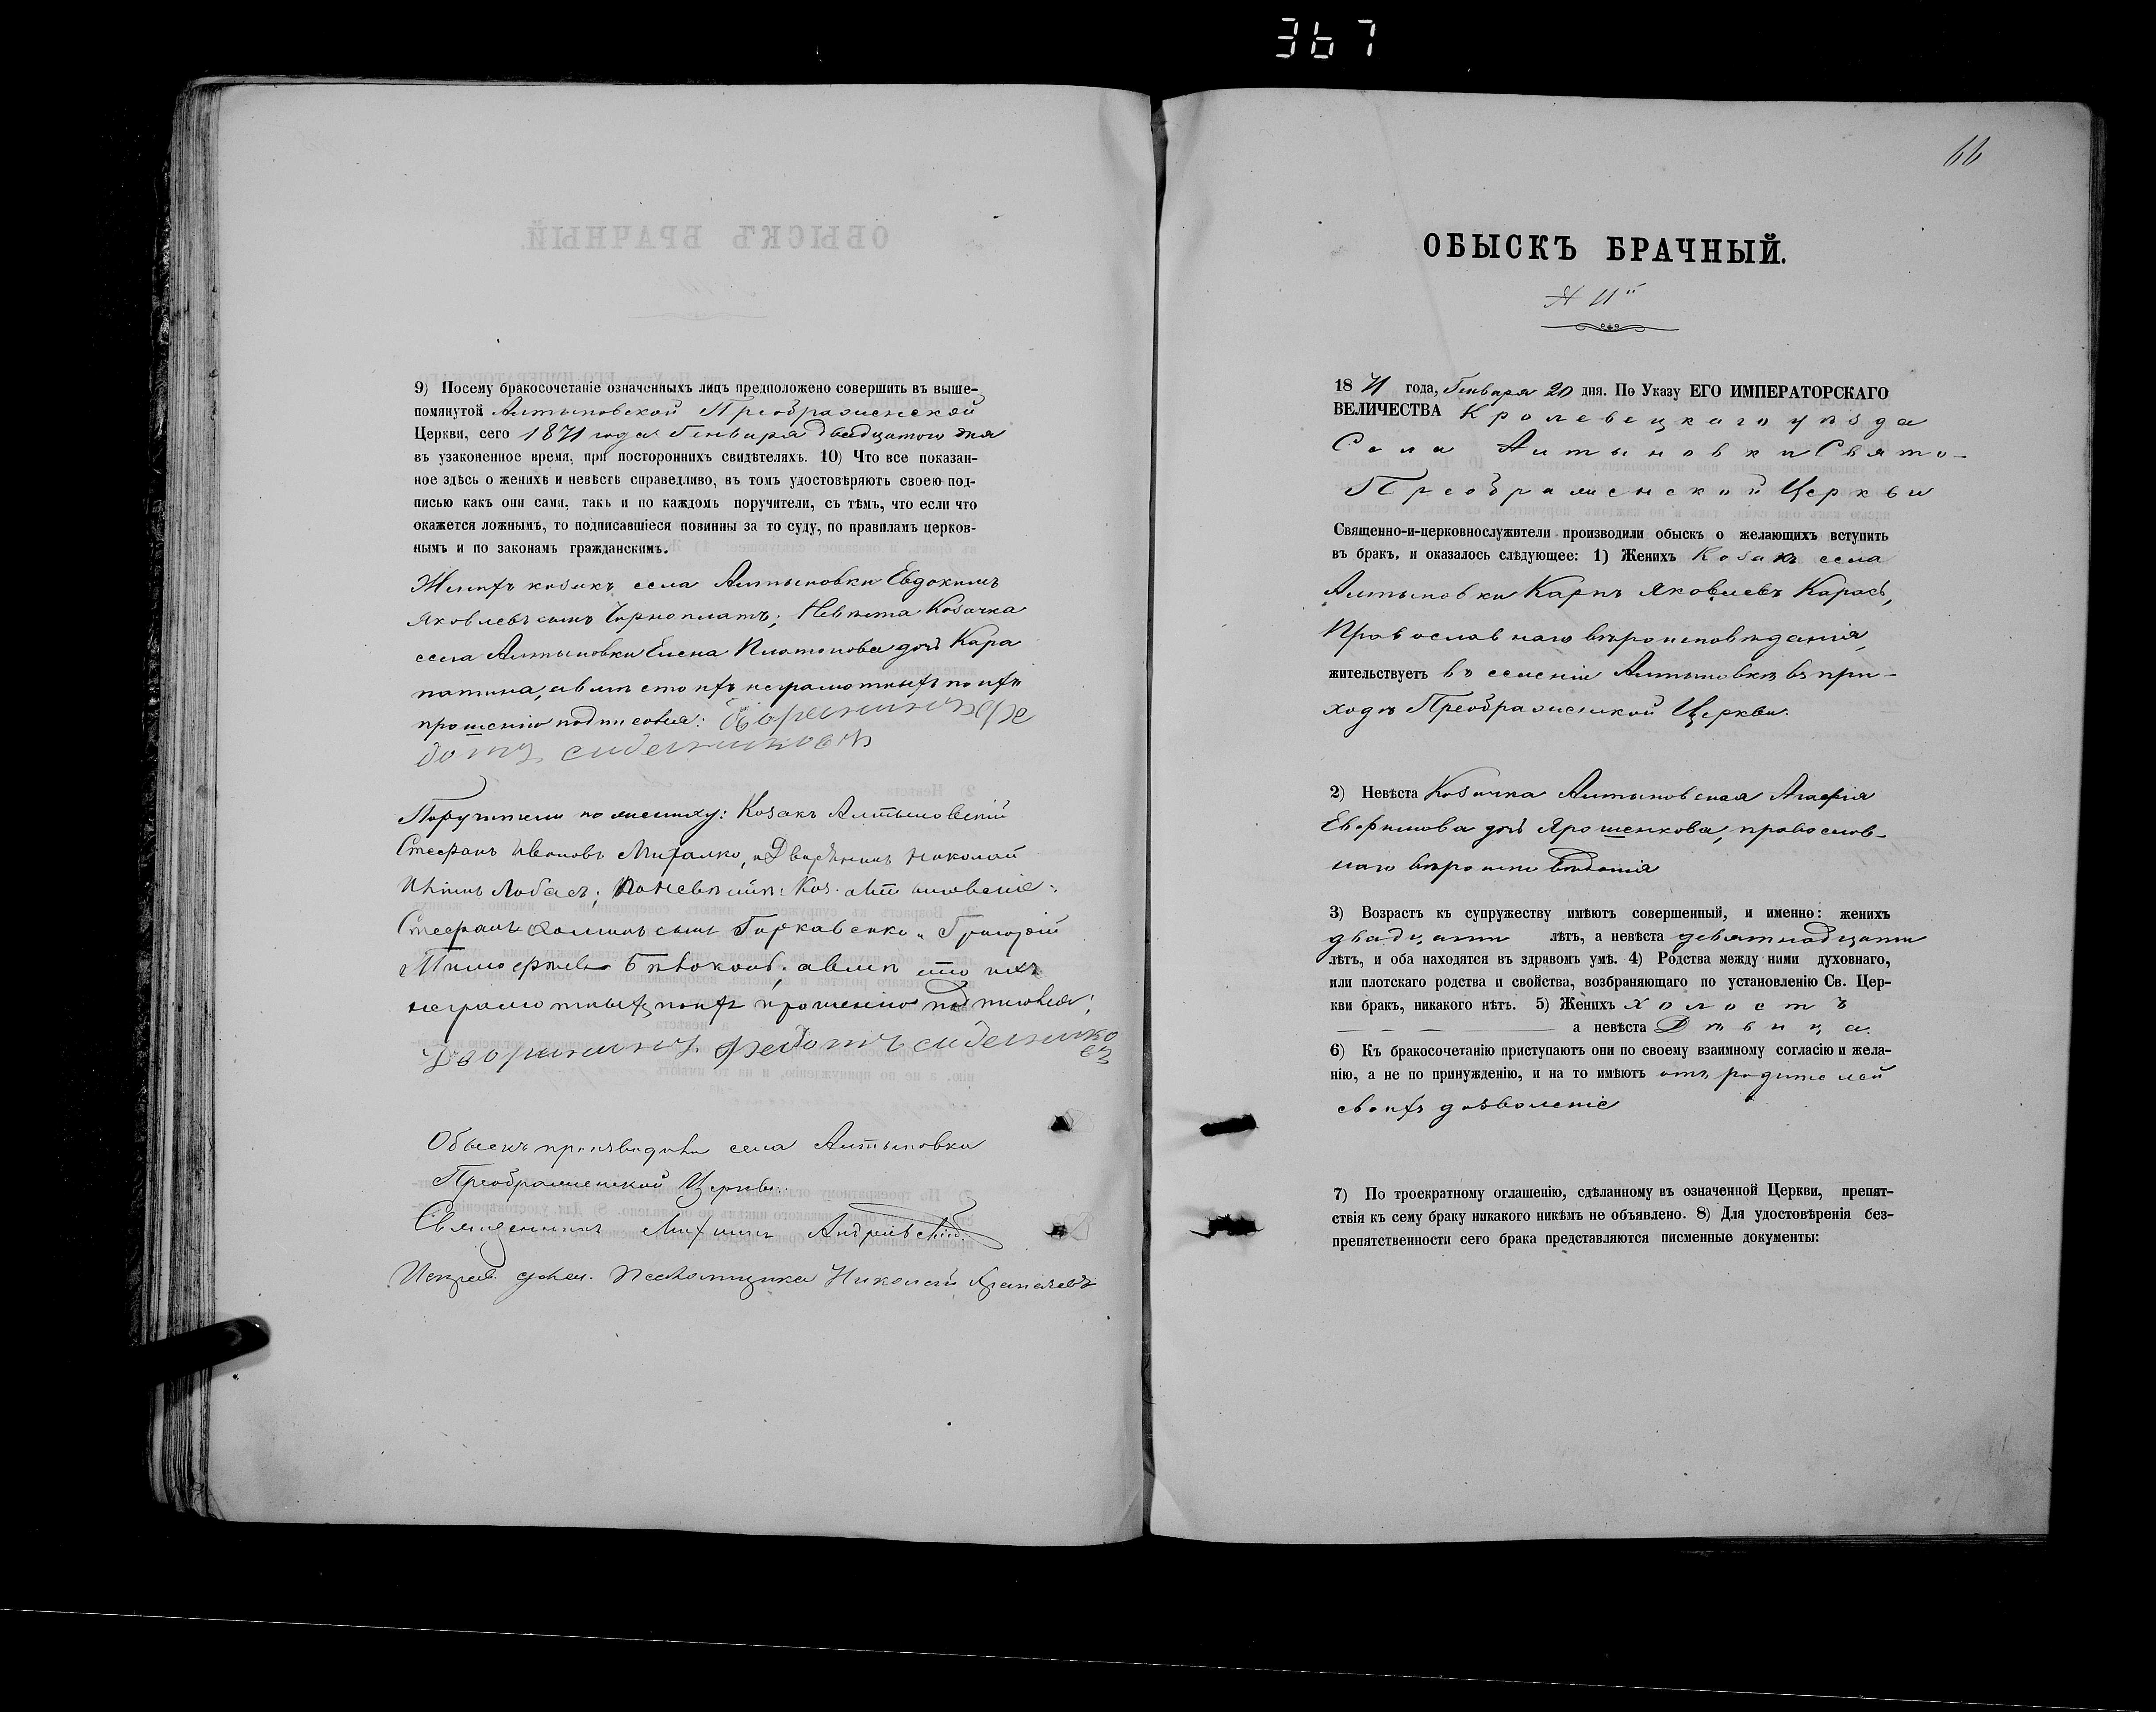 367
9) Посему бракосочетаніе означенныхъ лицъ предположено совершить въ выше-
помянутой Алтыновской Преображенской
Церкви, сего 1871 года Генваря двадцатого дня
въ узаконенное время, при постороннихъ свидѣтеляхъ. 10) Что все показан-
ное здѣсь о женихѣ и невѣстѣ справедливо, въ томъ удостовѣряютъ своею под-
писью какъ они сами, такъ и по каждомъ поручители, съ тѣмъ, что если что
окажется ложнымъ, то подписавшіеся повинны за то суду, по правиламъ церков-
нымъ и по законамъ гражданскимъ.
Женихъ козакъ села Алтыновки Евдокимъ
Яковлевъ сынъ Чорноплатъ; Невѣста Козачка
села Алтыновки Елена Платонова дочь Кара
патина, а вмѣсто ихъ неграмотныхъ по ихъ
прошенію подписовся: Дворянинъ Фе
дотъ
Поручители по жениху: Козакъ Алтыновскій
Стефанъ Ивановъ Михалко, и Дворянинъ Николай
Лобас; По невѣстѣ: Коз.
Стефанъ сынъ Григорій
а вмѣсто ихъ
неграмотныхъ по ихъ прошенію подписовся:
Дворянинъ Федотъ
Обыскъ производили села Алтыновки
Преображенской Церкви:
Священникъ Андріевскій
Николай
66
ОБЫСКЪ БРАЧНЫЙ.
№ 11й
1871 года, Генваря 20 дня. По Указу ЕГО ИМПЕРАТОРСКАГО
ВЕЛИЧЕСТВА Кролевецкаго уѣзда
Села Алтыновки Свято-
Преображенской Церкви
Священно-и-церковнослужители производили обыскъ о желающихъ вступить
въ бракъ, и оказалось слѣдующее: 1) Женихъ Козакъ села
Алтыновки Карпъ Яковлевъ Карась,
Православнаго вѣроисповѣданія,
жительствуетъ въ селеніи Алтыновкѣ въ при-
ходѣ Преображенской Церкви.
2) Невѣста Козачка Алтыновская Агафія
Евфимова дочь Ярошенкова, православ-
наго вѣроисповѣданія
3) Возрастъ къ супружеству имѣютъ совершенный, и именно: женихъ
двадцати лѣтъ, а невѣста девятнадцати
лѣтъ, и оба находятся въ здравомъ умѣ. 4) Родства между ними духовнаго,
или плотскаго родства и свойства, возбраняющаго по установленію Св. Цер-
кви бракъ, никакого нѣтъ. 5) Женихъ холостъ
а невѣста Дѣвица.
6) Къ бракосочетанію приступаютъ они по своему взаимному согласію и жела-
нію, а не по принужденію, и на то имѣютъ отъ родителей
своихъ дозволеніе
7) По троекратному оглашенію, сдѣланному въ означенной Церкви, препят-
ствія къ сему браку никакого никѣмъ не объявлено. 8) Для удостовѣренія без-
препятственности сего брака представляются писменные документы: